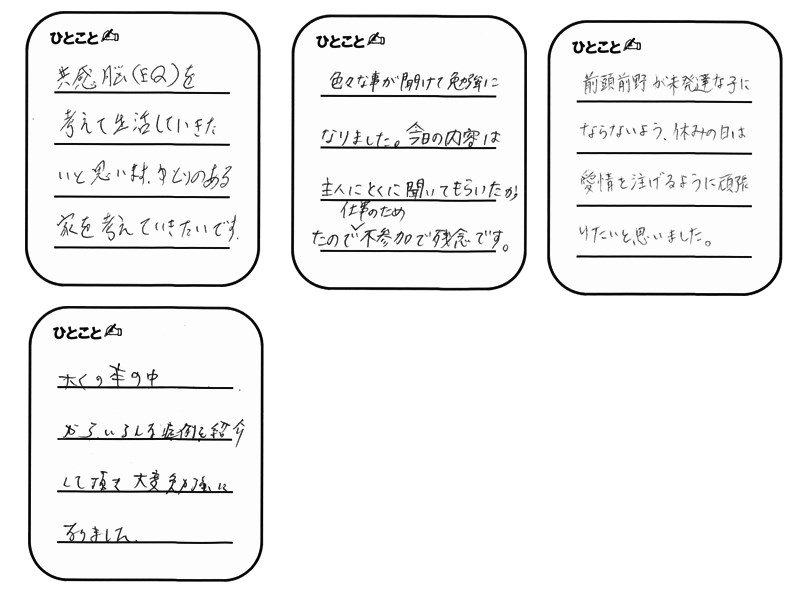 ひとこと
共感脳(EQ)を
考えて生活していきた
いと思います。ゆとりのある
家を考えていきたいです。
ひとこと
色々な事が聞けて勉強に
なりました。今日の内容は
主人にとくに聞いてもらいたか
仕事のため
たので不参加で残念です。
ひとこと
前頭前野が未発達な子に
ならないよう、休みの日は
愛情を注げるように頑張
りたいと思いました。
ひとこと
たくの本の中
から、いろんな症例を紹介
して頂き大変勉強に
なりました。